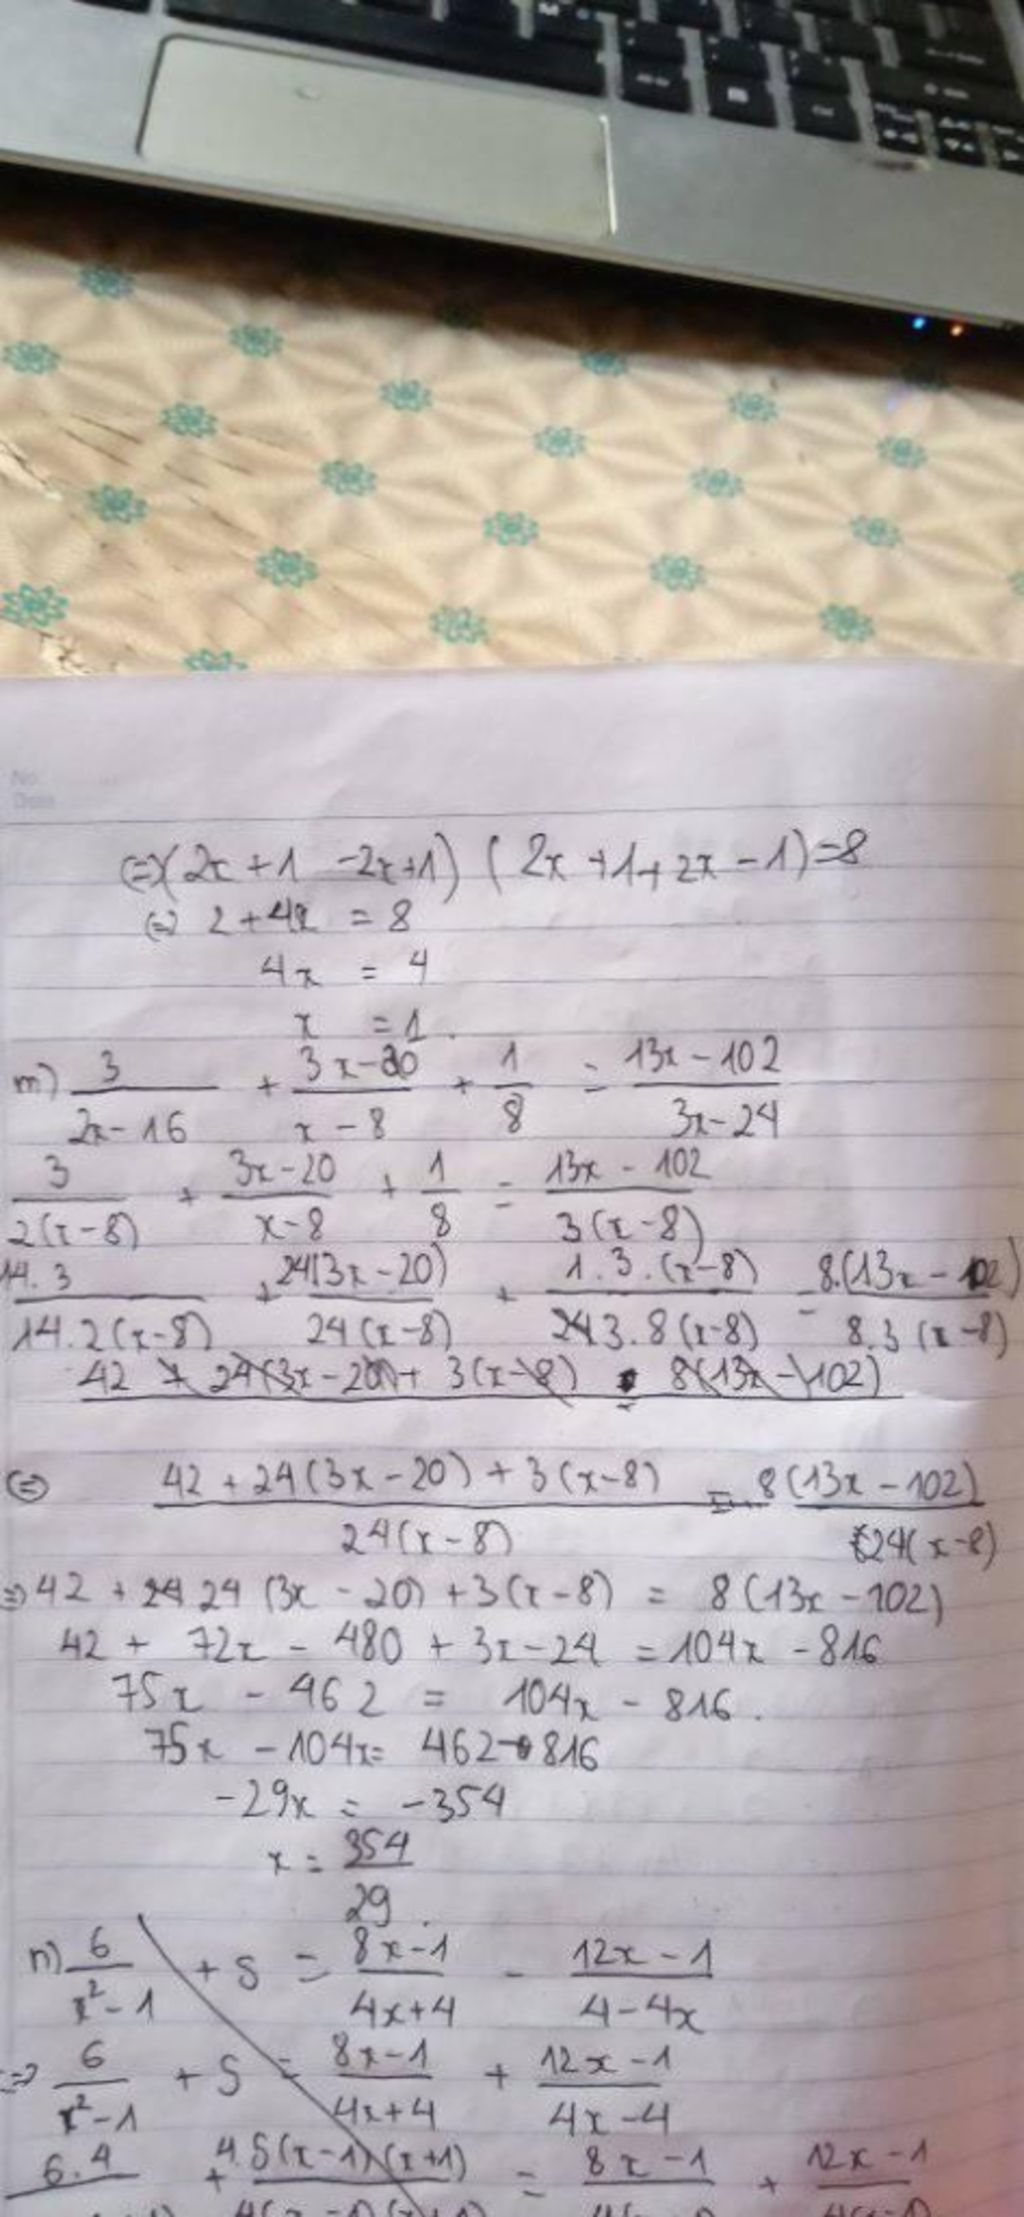 No
Date
(=)(2x+1 -2x+1) (2x+1+2x-1)=8
(=) 2+4x = 8
4x = 4
x = 1.
m) 3/(2x-16) + (3x-20)/(x-8) + 1/8 = (13x-102)/(3x-24)
3/(2(x-8)) + (3x-20)/(x-8) + 1/8 = (13x-102)/(3(x-8))
14.3/(14.2(x-8)) + 24(3x-20)/(24(x-8)) + 1.3.(x-8)/(3.8(x-8)) = 8.(13x-102)/(8.3(x-8))
42 + 24(3x-20) + 3(x-8) = 8(13x-102)
(=) (42+24(3x-20)+3(x-8))/(24(x-8)) = 8(13x-102)/(24(x-8))
=) 42 + 24 24 (3x-20) + 3(x-8) = 8(13x-102)
42 + 72x - 480 + 3x - 24 = 104x - 816
75x - 462 = 104x - 816.
75x - 104x = 462 - 816
-29x = -354
x = 354/29.
n) 6/(x²-1) + 5 = (8x-1)/(4x+4) - (12x-1)/(4-4x)
=> 6/(x²-1) + 5 = (8x-1)/(4x+4) + (12x-1)/(4x-4)
6.4 + 4.5(x-1)(x+1) = 8x-1 + 12x-1